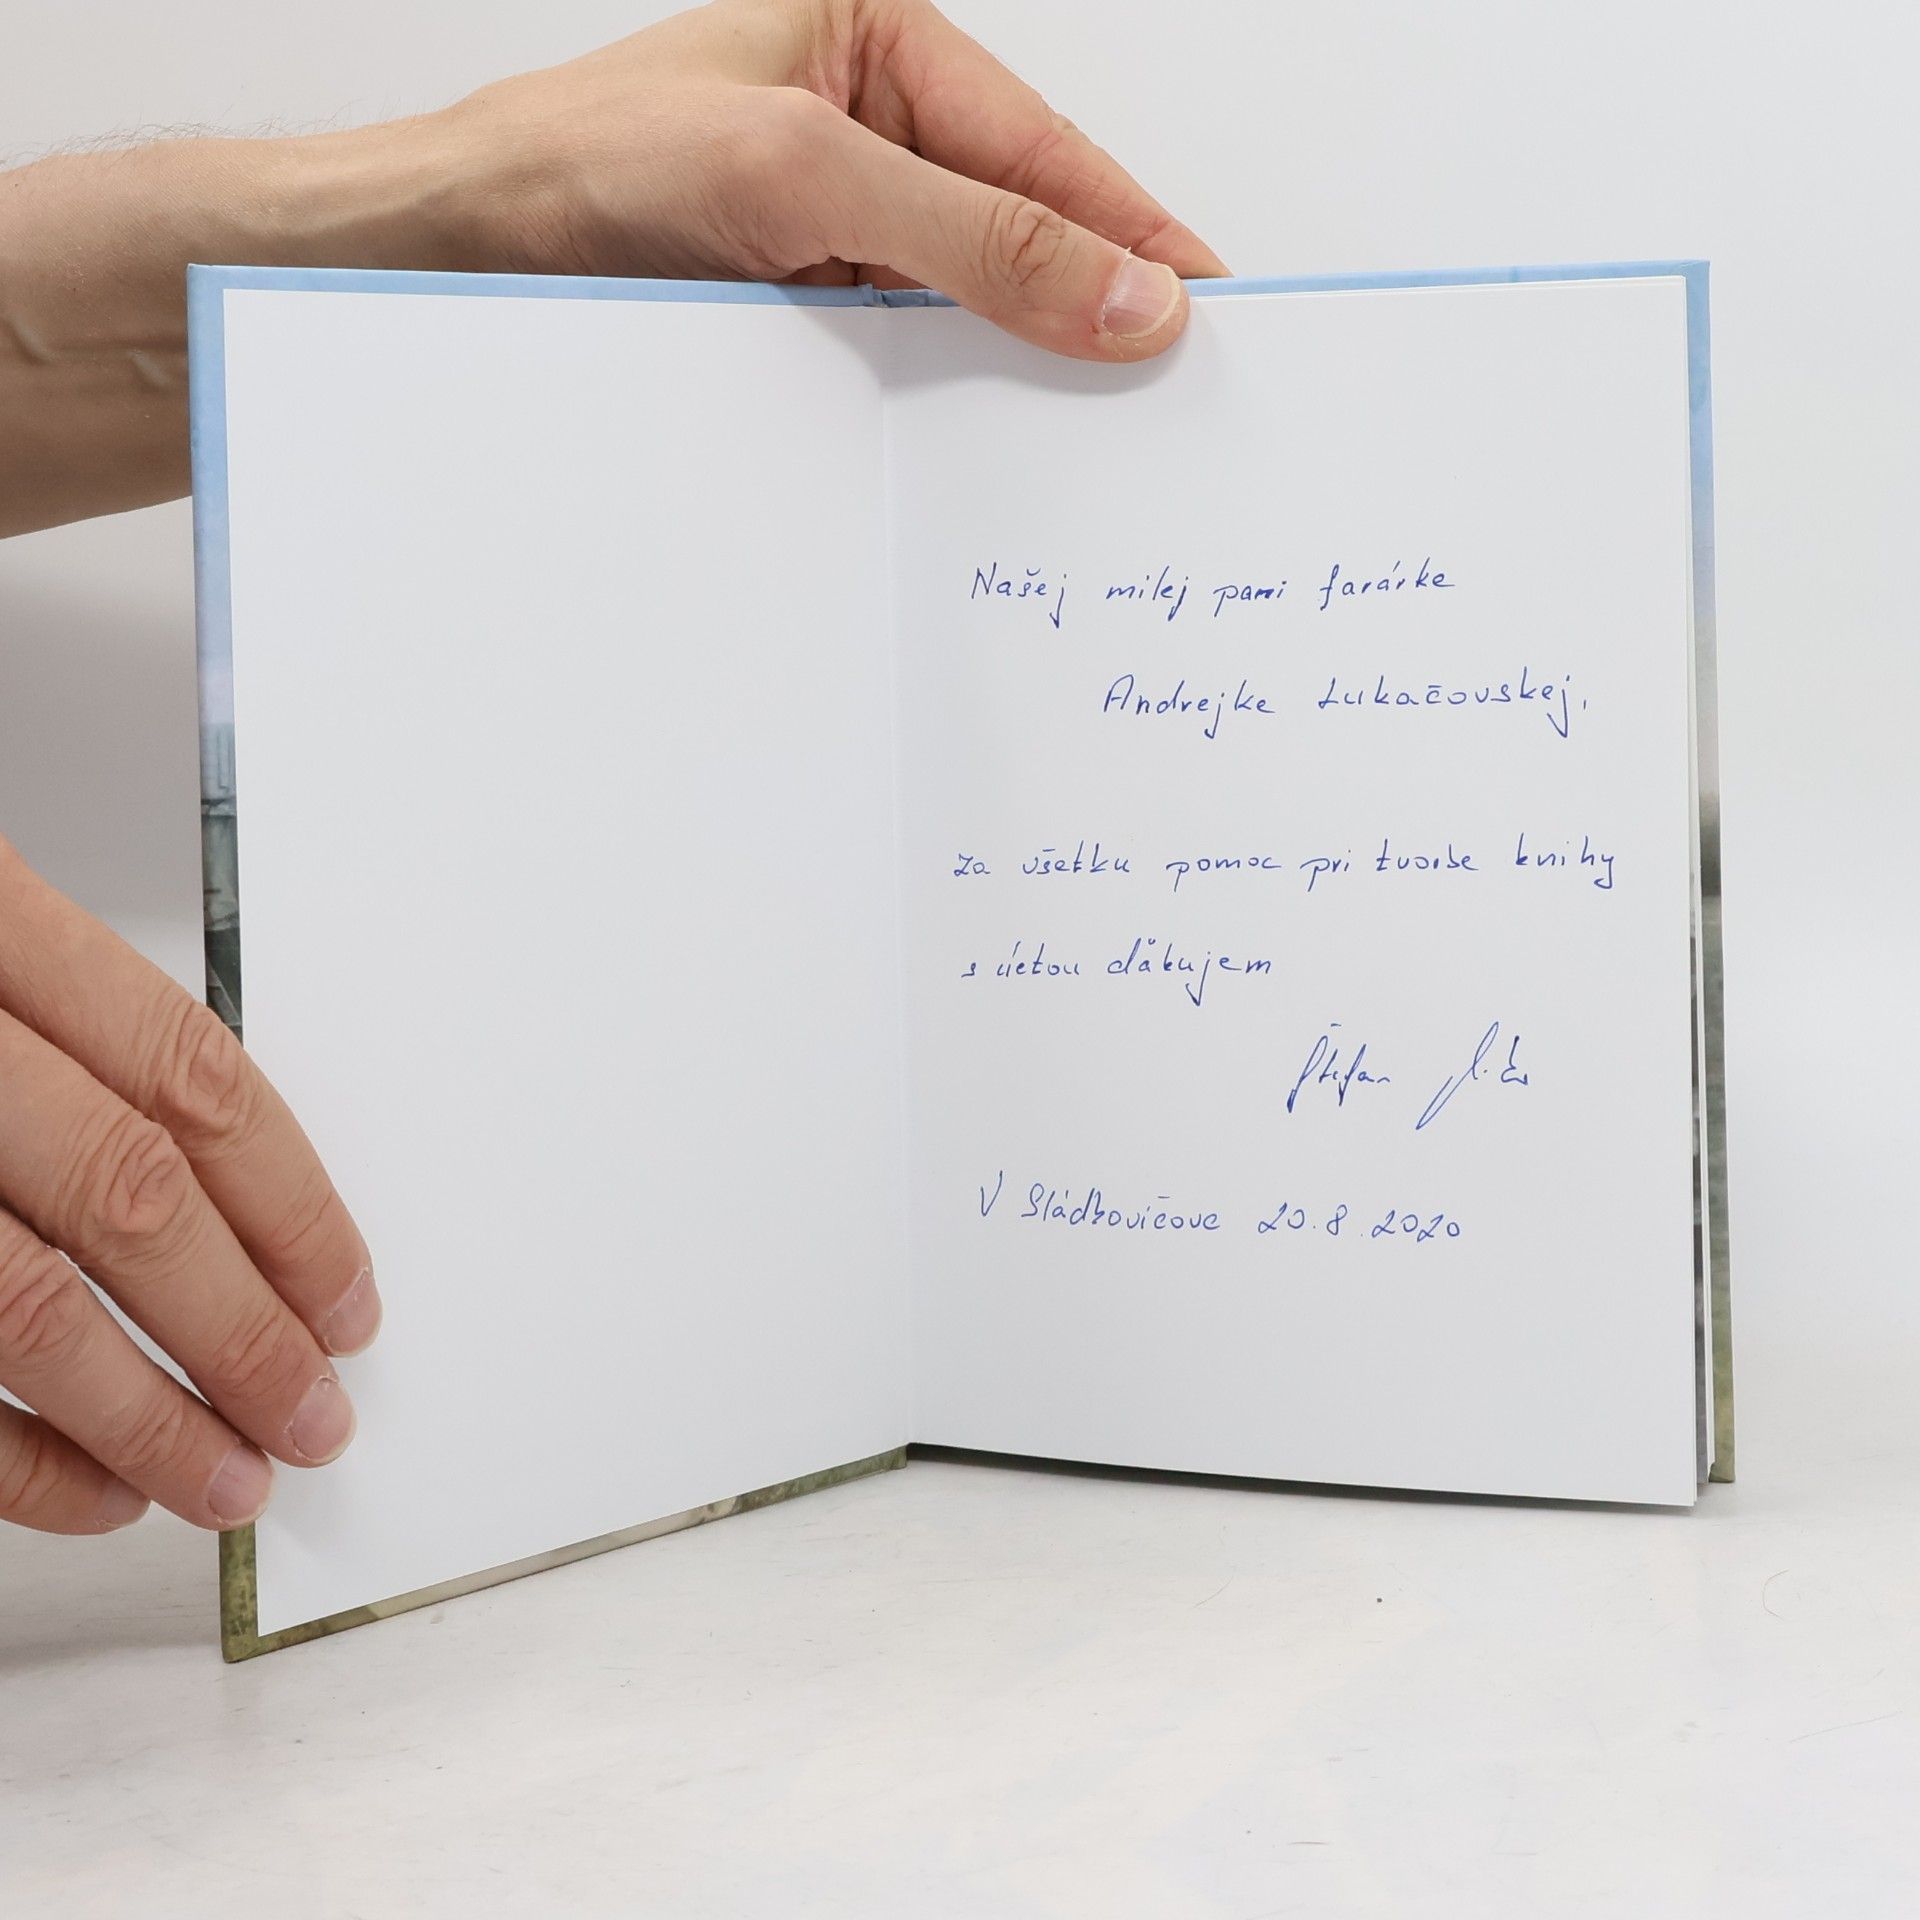 Našej milej pani farárke
Andrejke Lukačovskej,
za všetku pomoc pri tvorbe knihy
s úctou ďakujem
Štefan
V Sládkovičove 20.8.2020